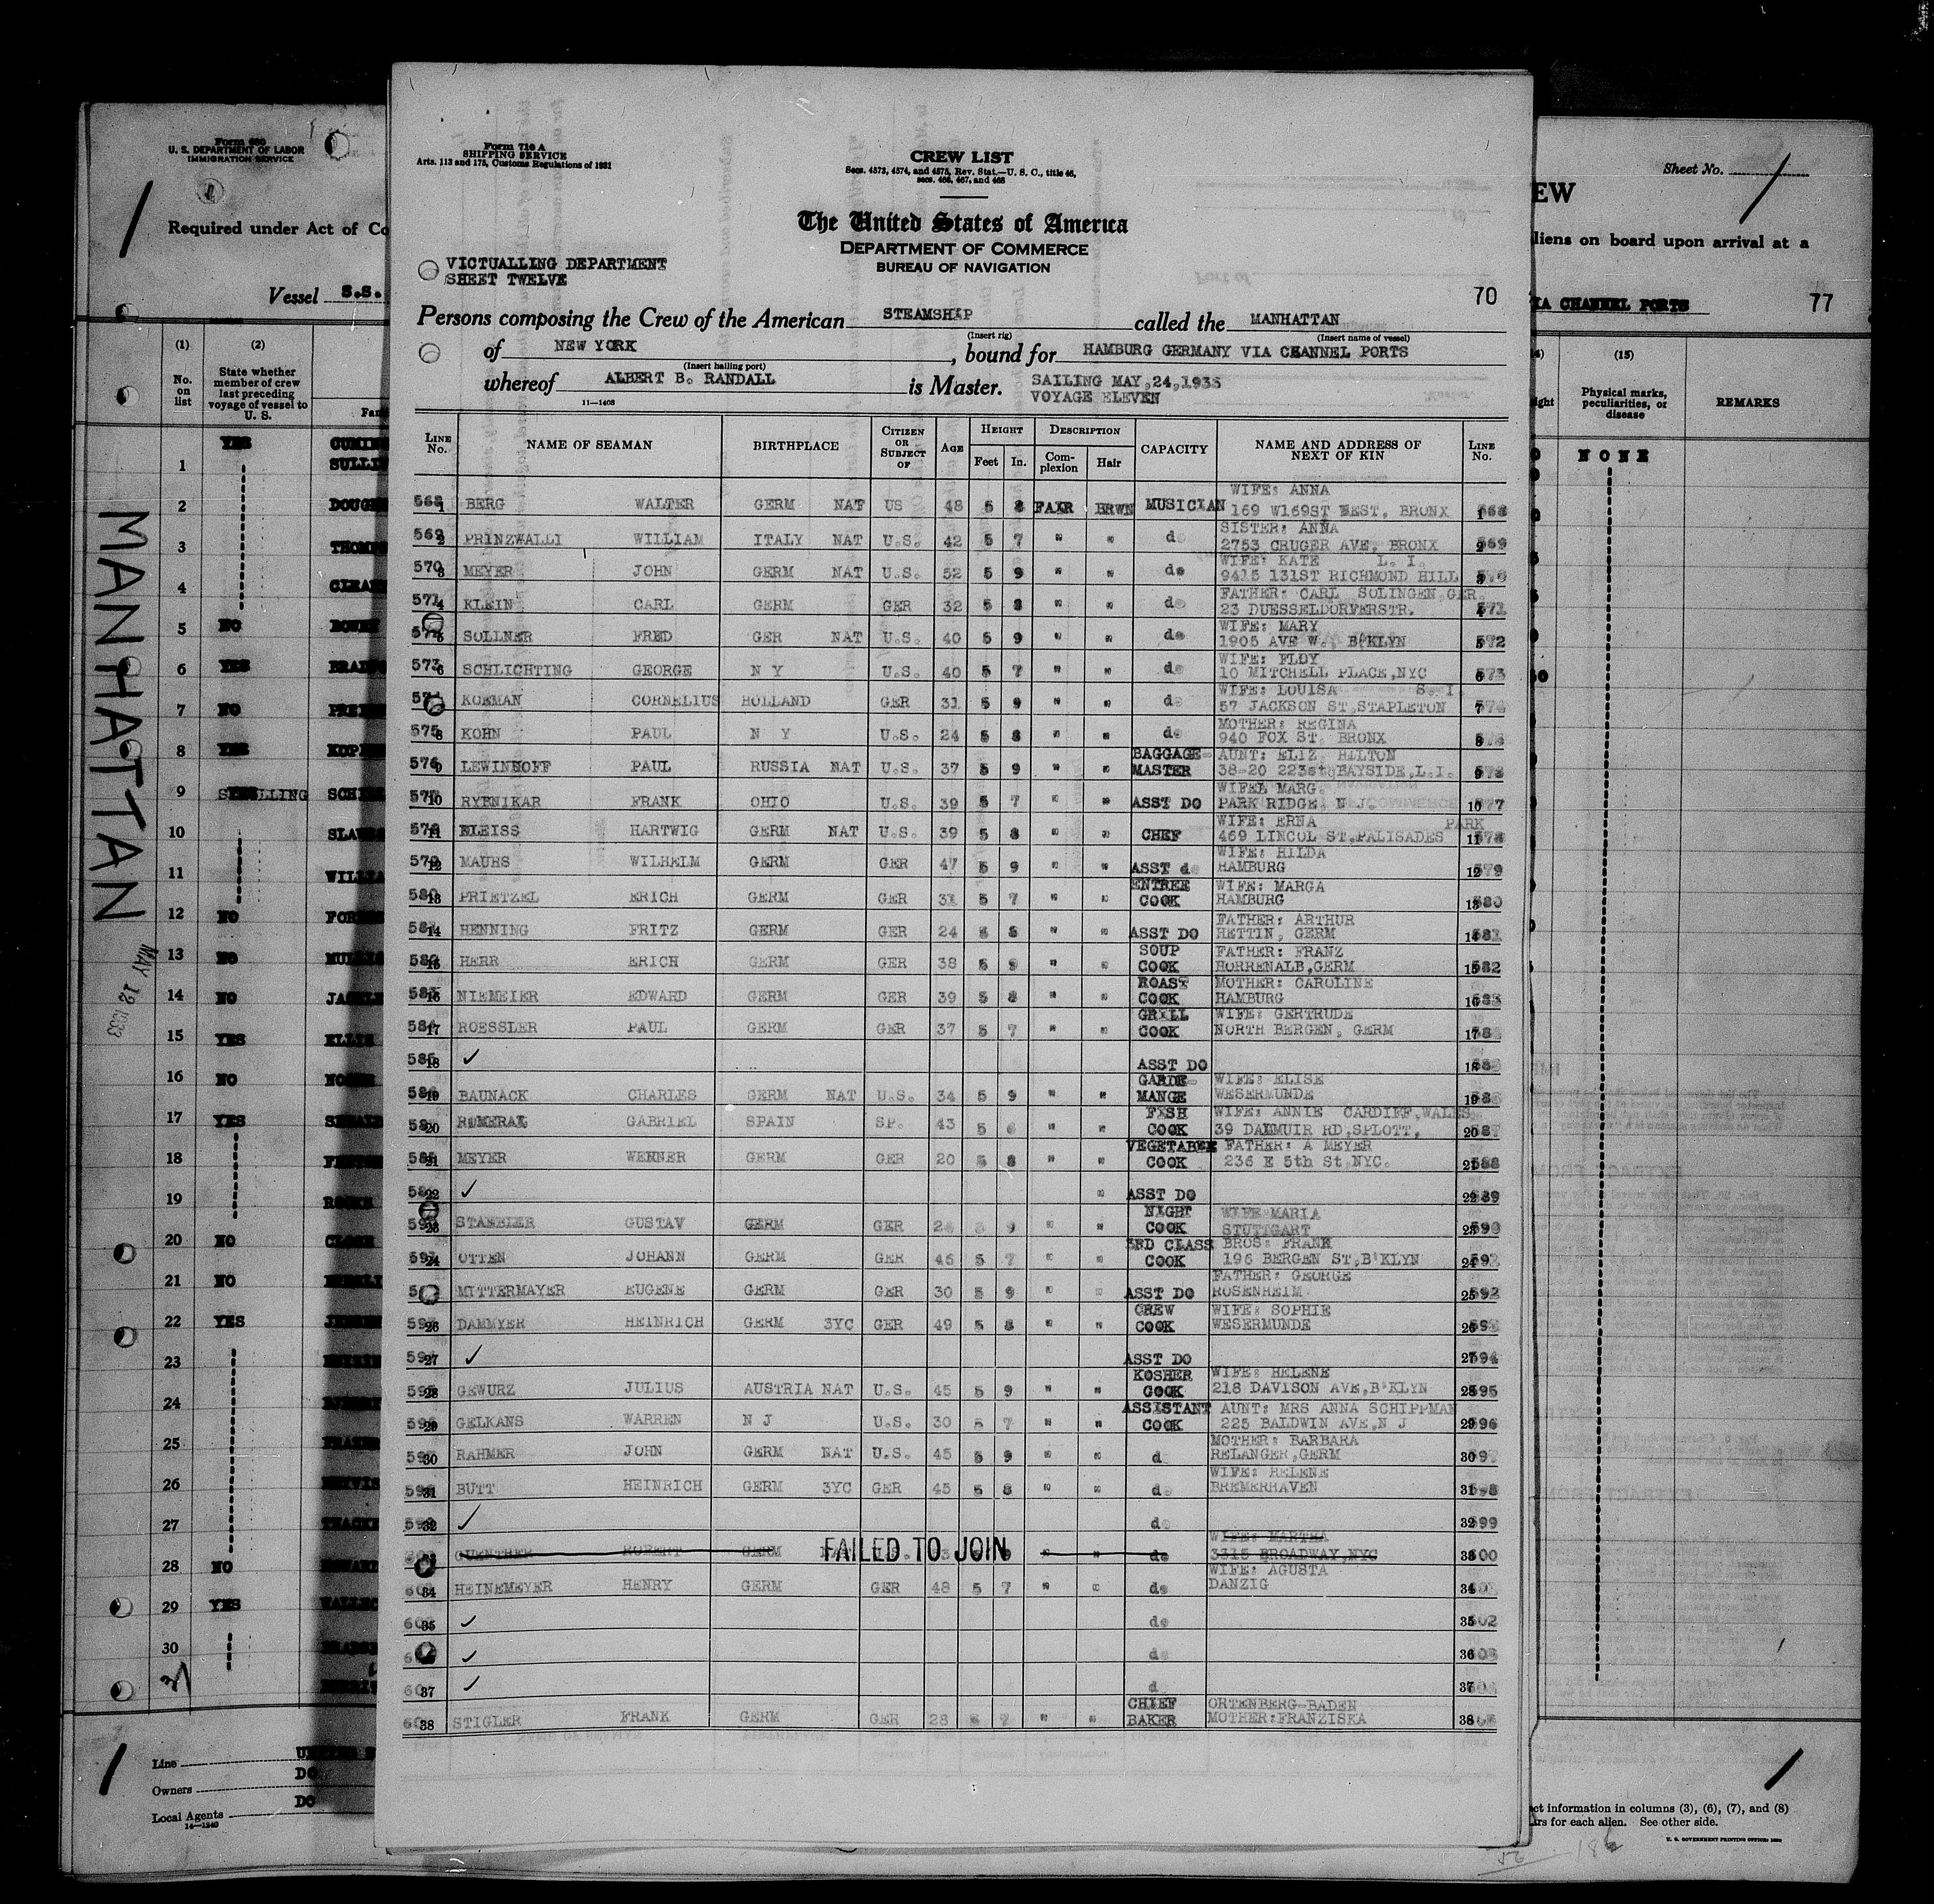 Form 680
U. S. DEPARTMENT OF LABOR
IMMIGRATION SERVICE
Required under Act of Co
Vessel S.S.
(1) (2)
No. on list
State whether member of crew last preceding voyage of vessel to U. S.
MANHATTAN
MAY 12 1933
1 YES
2
3
4
5 NO
6 YES
7 NO
8 YES
9
10
11
12 NO
13 NO
14 NO
15 YES
16 NO
17 YES
18
19
20 NO
21 NO
22 YES
23
24
25
26
27
28 NO
29 YES
30
31
Line
Owners
Local Agents
14—1240
Form 710 A
SHIPPING SERVICE
Arts. 113 and 175, Customs Regulations of 1931
CREW LIST
Secs. 4573, 4574, and 4575, Rev. Stat.—U. S. C., title 46,
secs. 466, 467, and 468
The United States of America
DEPARTMENT OF COMMERCE
BUREAU OF NAVIGATION
VICTUALLING DEPARTMENT
SHEET TWELVE
70
Persons composing the Crew of the American STEAMSHIP called the MANHATTAN
(Insert rig) (Insert name of vessel)
of NEW YORK, bound for HAMBURG GERMANY VIA CHANNEL PORTS
(Insert hailing port)
whereof ALBERT B. RANDALL is Master. SAILING MAY,24,1933
11—1408 VOYAGE ELEVEN
LINE No. NAME OF SEAMAN BIRTHPLACE CITIZEN OR SUBJECT OF AGE HEIGHT Feet In. DESCRIPTION Complexion Hair CAPACITY NAME AND ADDRESS OF NEXT OF KIN LINE No.
WIFE: ANNA
568 1 BERG WALTER GERM NAT US 48 5 8 FAIR BRWN MUSICIAN 169 W169ST WEST, BRONX 1 568
SISTER: ANNA
569 2 PRINZWALLI WILLIAM ITALY NAT U.S. 42 5 7 " " do 2753 CRUGER AVE, BRONX 2 569
WIFE: KATE L. I.
570 3 MEYER JOHN GERM NAT U.S. 52 5 9 " " do 9415 131ST RICHMOND HILL 3 570
FATHER: CARL SOLINGEN,GER.
571 4 KLEIN CARL GERM GER 32 5 8 " " do 23 DUESSELDORFERSTR. 4 571
WIFE: MARY
572 5 SOLLNER FRED GER NAT U.S. 40 5 9 " " do 1905 AVE W., B'KLYN 5 572
WIFE: FLOY
573 6 SCHLICHTING GEORGE N Y U.S. 40 5 7 " " do 10 MITCHELL PLACE,NYC 6 573
WIFE: LOUISA S. I.
574 7 KOEMAN CORNELIUS HOLLAND GER 31 5 9 " " do 57 JACKSON ST,STAPLETON 7 574
MOTHER: REGINA
575 8 KOHN PAUL N Y U.S. 24 5 8 " " do 940 FOX ST. BRONX 8
BAGGAGE- AUNT: ELIZ HILTON
576 9 LEWINHOFF PAUL RUSSIA NAT U.S. 37 5 9 " " MASTER 38-20 223st BAYSIDE,L.I. 9
WIFE: MARG.
577 10 RYBNIKAR FRANK OHIO U.S. 39 5 7 " " ASST DO PARK RIDGE, N J. 10 577
WIFE: ERNA PARK
578 11 KLEISS HARTWIG GERM NAT U.S. 39 5 8 " " CHEF 469 LINCOL ST,PALISADES 11 578
WIFE: HILDA
579 12 MAUHS WILHELM GERM GER 47 5 9 " " ASST do HAMBURG 12 579
ENTREE WIFE: MARGA
580 13 PRIETZEL ERICH GERM GER 31 5 7 " " COOK HAMBURG 13 580
FATHER: ARTHUR
581 14 HENNING FRITZ GERM GER 24 5 8 " " ASST DO HETTIN, GERM 14 581
SOUP FATHER: FRANZ
582 15 HERR ERICH GERM GER 38 5 9 " " COOK HORRENALB,GERM 15 582
ROAST MOTHER: CAROLINE
583 16 NIEMEIER EDWARD GERM GER 39 5 8 " " COOK HAMBURG 16 583
GRILL WIFE: GERTRUDE
584 17 ROESSLER PAUL GERM GER 37 5 7 " " COOK NORTH BERGEN, GERM 17
585 18 ✓ ASST DO 18
GARDE- WIFE: ELISE
19 BAUNACK CHARLES GERM NAT U.S. 34 5 9 " " MANGE WESERMUNDE 19
FISH WIFE: ANNIE CARDIFF,WALES
20 ROMERAL GABRIEL SPAIN SP. 43 5 6 " " COOK 39 DALMUIR RD,SPLOTT, 20
VEGETABLE FATHER: A MEYER
21 MEYER WERNER GERM GER 20 5 8 " " COOK 236 E 5th St,NYC. 21 588
22 ✓ " ASST DO 22 589
NIGHT WIFE MARIA
23 STAMBLER GUSTAV GERM GER 9 " " COOK STUTTGART 23 590
3RD CLASS BROS: FRANK
24 OTTEN JOHANN GERM GER 46 5 7 " " COOK 196 BERGEN ST,B'KLYN 24
FATHER: GEORGE
MITTERMAYER EUGENE GERM GER 30 5 9 " " ASST DO ROSENHEIM 25 592
CREW WIFE: SOPHIE
26 DAMMYER HEINRICH GERM 3YC GER 49 5 8 " " COOK WESERMUNDE 26
27 ✓ ASST DO 27 594
KOSHER WIFE: HELENE
28 GEWURZ JULIUS AUSTRIA NAT U.S. 45 5 9 " " COOK 218 DAVISON AVE,B'KLYN 28 595
ASSISTANT AUNT: MRS ANNA SCHIPPMAN
29 GELKANS WARREN N J U.S. 30 5 7 " " COOK 225 BALDWIN AVE,N J 29 596
MOTHER: BARBARA
30 RAHMER JOHN GERM NAT U.S. 45 5 9 " " d RELANGER,GERM 30
WIFE: HELENE
31 BUTT HEINRICH GERM 3YC GER 45 5 8 " " do BREMERHAVEN 31 598
32 ✓ do 32 599
WIFE: MARTHA
GUENTHER ROBERT GERM FAILED TO JOIN " " do 3315 BROADWAY,NYC 33 600
WIFE: AGUSTA
34 HEINEMEYER HENRY GERM GER 48 5 7 " " do DANZIG 34
35 ✓ do 35 602
✓ do 36 603
37 ✓ d 37
CHIEF ORTENBERG-BADEN
38 STIGLER FRANK GERM GER 28 5 7 " " BAKER MOTHER:FRANZISKA 38
Sheet No. 1
EW
liens on board upon arrival at a
VIA CHANNEL PORTS 77
(15)
Physical marks, peculiarities, or disease
REMARKS
NONE
ct information in columns (3), (6), (7), and (8)
rs for each alien. See other side.
U. S. GOVERNMENT PRINTING OFFICE